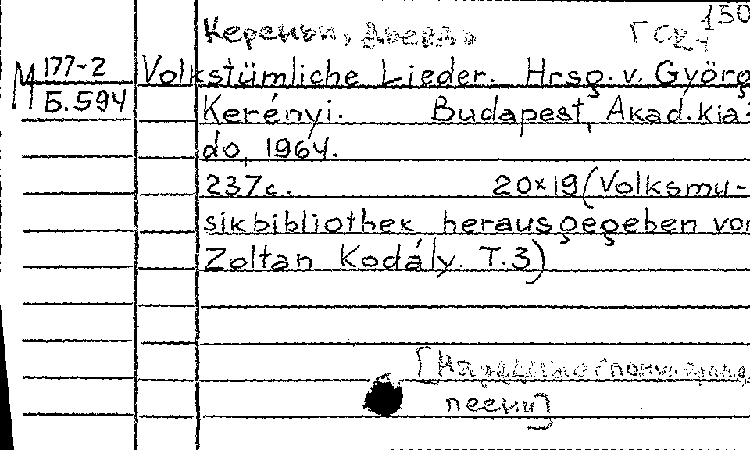 150
Кереньи, Дьердь
М 177-2 Volkstümliche Lieder. Hrsg. v. György
Б.594 Kerényi. Budapest, Akad. kia-
do, 1964.
237с. 20×19 (Volksmu-
sikbibliothek herausgegeben von
Zoltan Kodály. T.3)
песни]